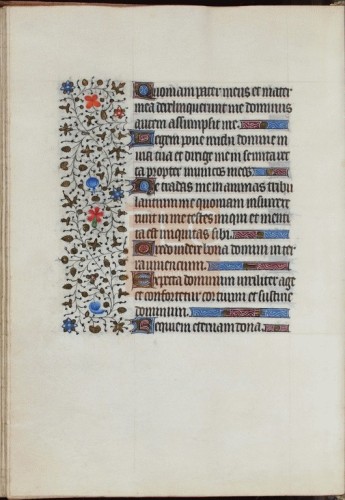 Quoniam pater meus et mater
mea dereliquerunt me dominus
autem assumpsit me.
Legem pone michi domine in
via tua et dirige me in semita rec
ta propter inimicos meos.
Ne tradas me in animas tribu
lantium me quoniam insurrexe
runt in me testes iniqui et menti
ta est iniquitas sibi.
Credo videre bona domini in ter
ra viventium.
Expecta dominum viriliter age
et confortetur cor tuum et sustine
dominum.
Requiem eternam dona.